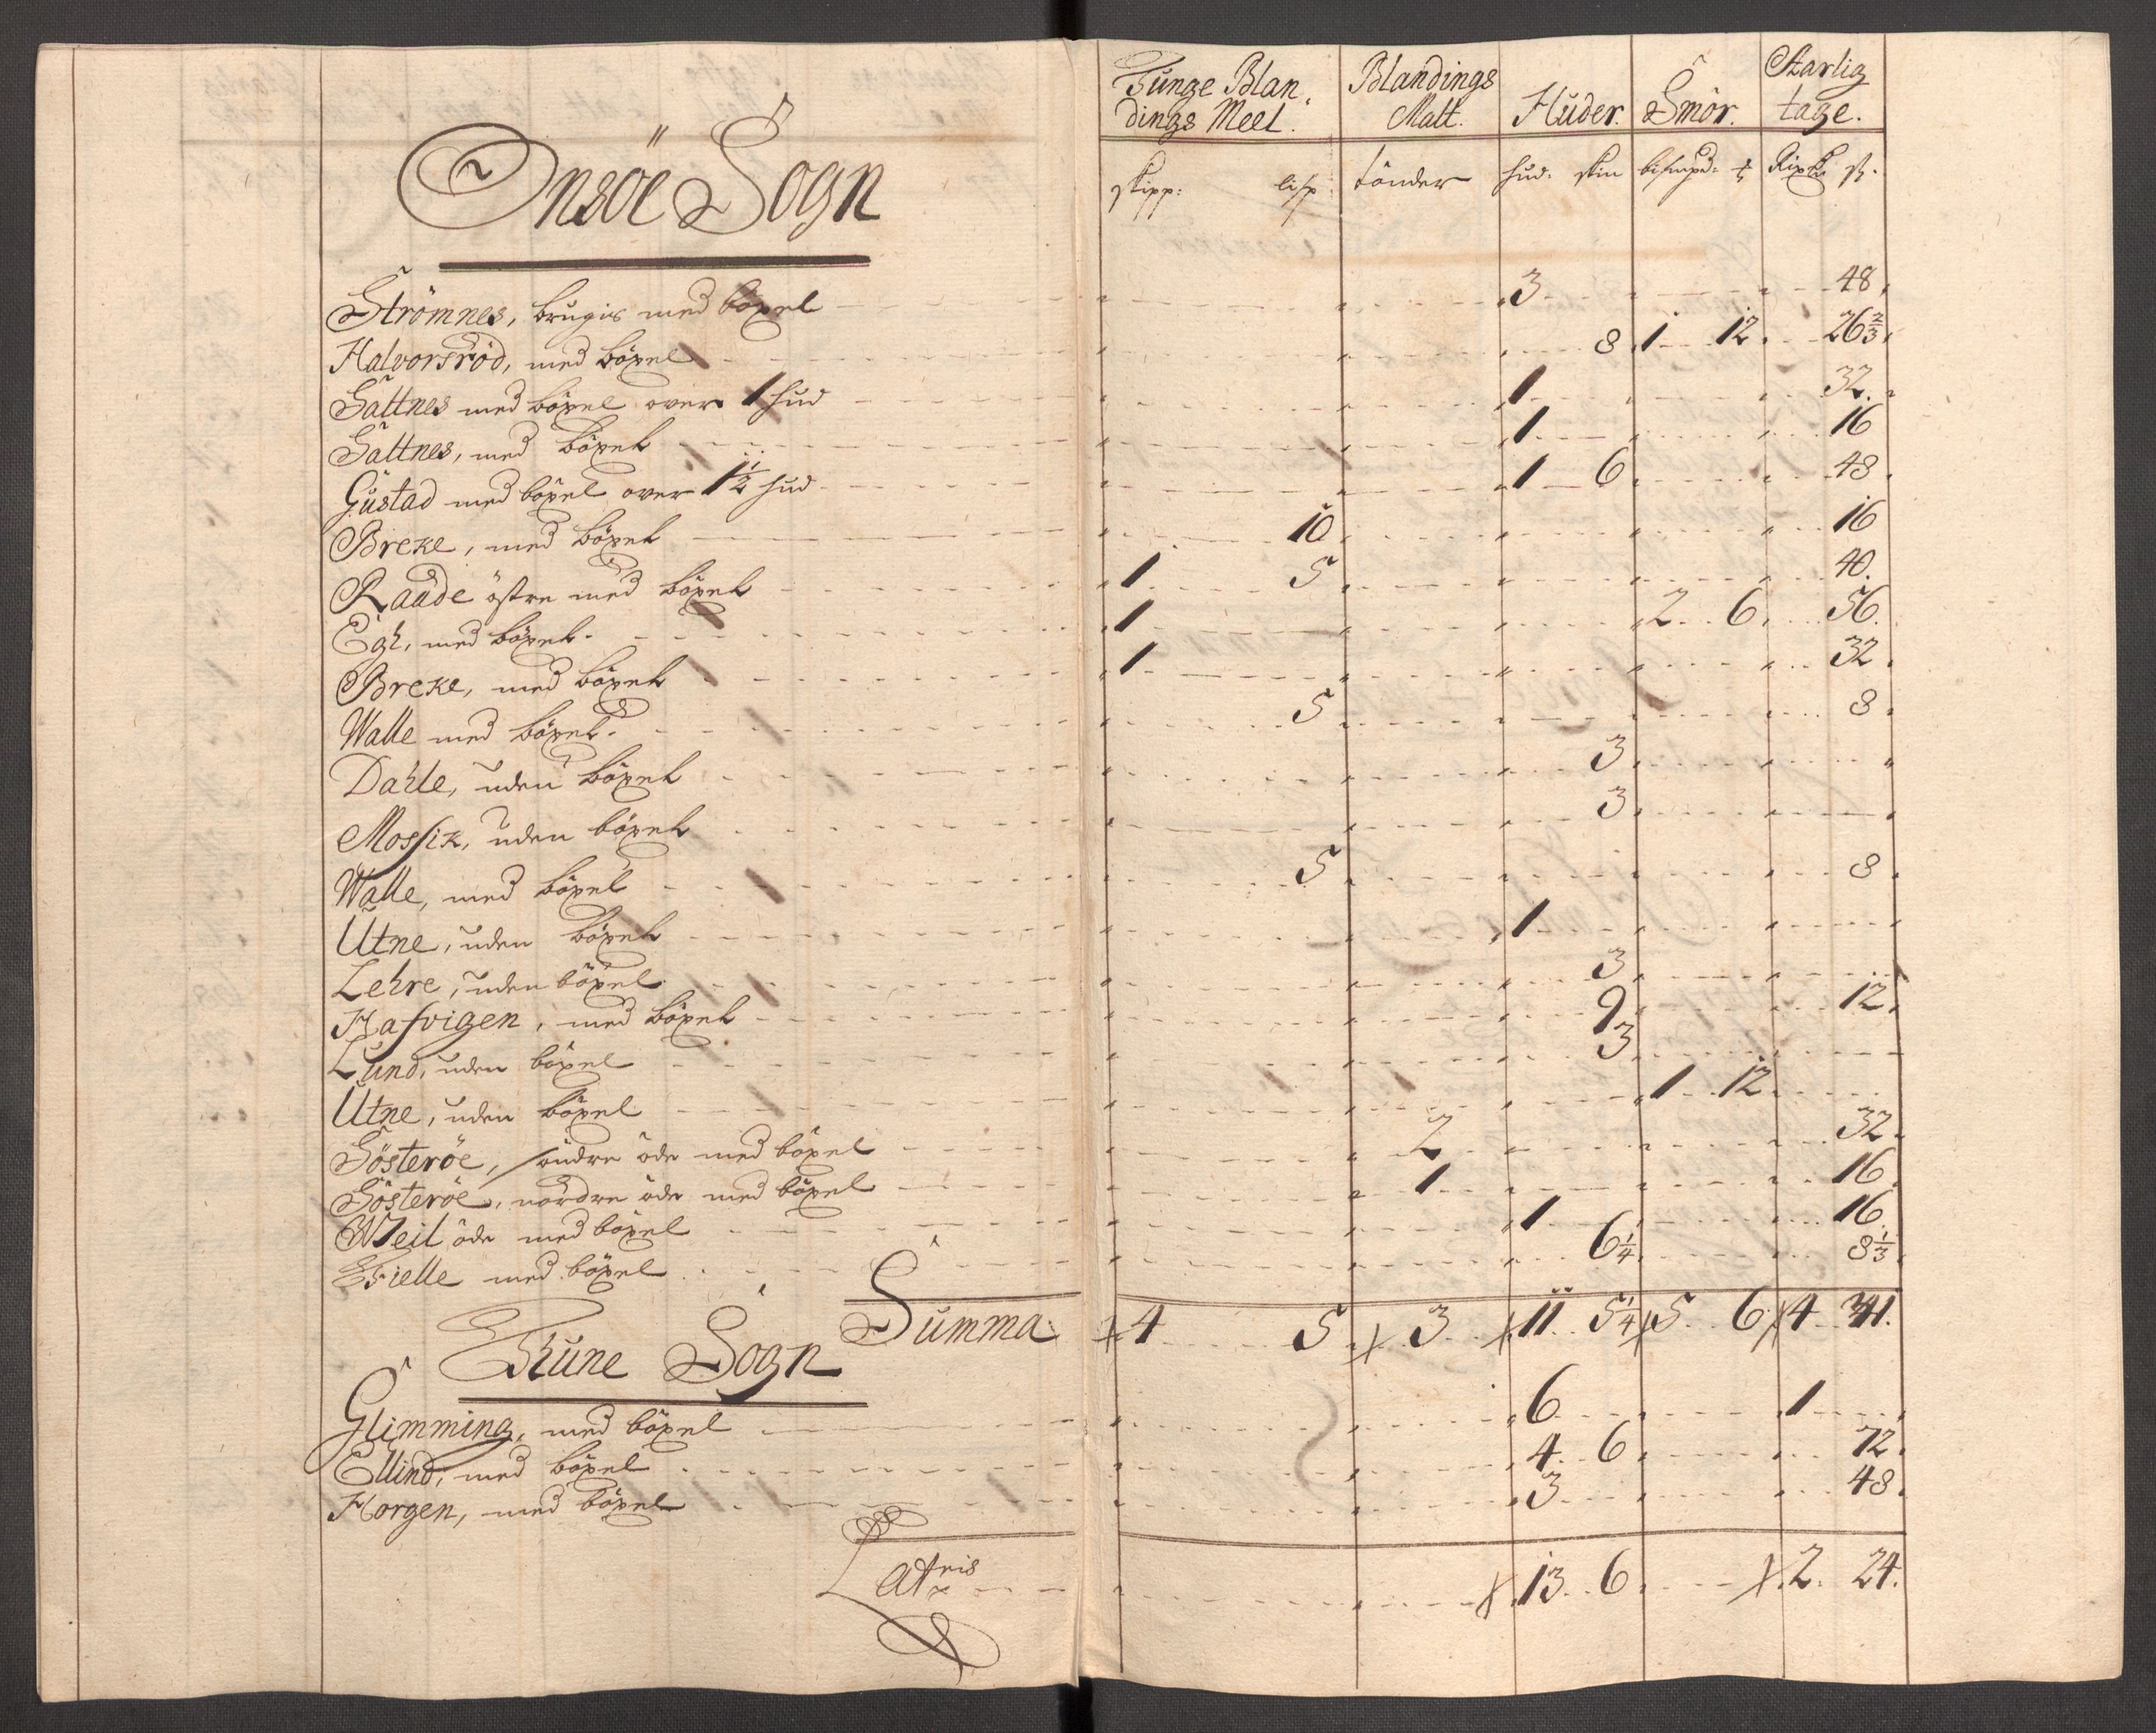 Tunge Blandings Meel. Blandings Malt. Huder. Smör. Aarlig tage.
skipp: lisp: tönder hud: skin bismpd: ℔ Rixdr ß.
Onsöe Sogn
Strömnes, brugis med böxel 3 48
Halvorsröd, med böxel 8 1 12 26 2/3
Sattnes med böxel over 1 hud 1 32
Sattnes, med böxel 1 16
Gustad med böxel over 1 1/2 hud 1 6 48
Breke, med böxel 10 16
Raade östre med böxel 1 5 40
Egh, med böxel 1 2 6 56
Breke, med böxel 1 32
Walle med böxel 5 8
Dahle, uden böxel 3
Mossik, uden böxel 3
Walle, med böxel 5 8
Utne, uden böxel 1
Lehre, uden böxel 3
Hafvigen, med böxel 9 12
Lund, uden böxel 3
Utne, uden böxel 1 12
Sösteröe, söndre öde med böxel 2 32
Sösteröe, nordre öde med böxel 1 16
Weil öde med böxel 1 16
Fielle med böxel 6 1/4 8 1/3
Summa 4 5 3 11 5 1/4 5 6 4 41
Thune Sogn
Glimming, med böxel 6 1
Ellind, med böxel 4 6 72
Horgen, med böxel 3 48
Lateris 13 6 2 24